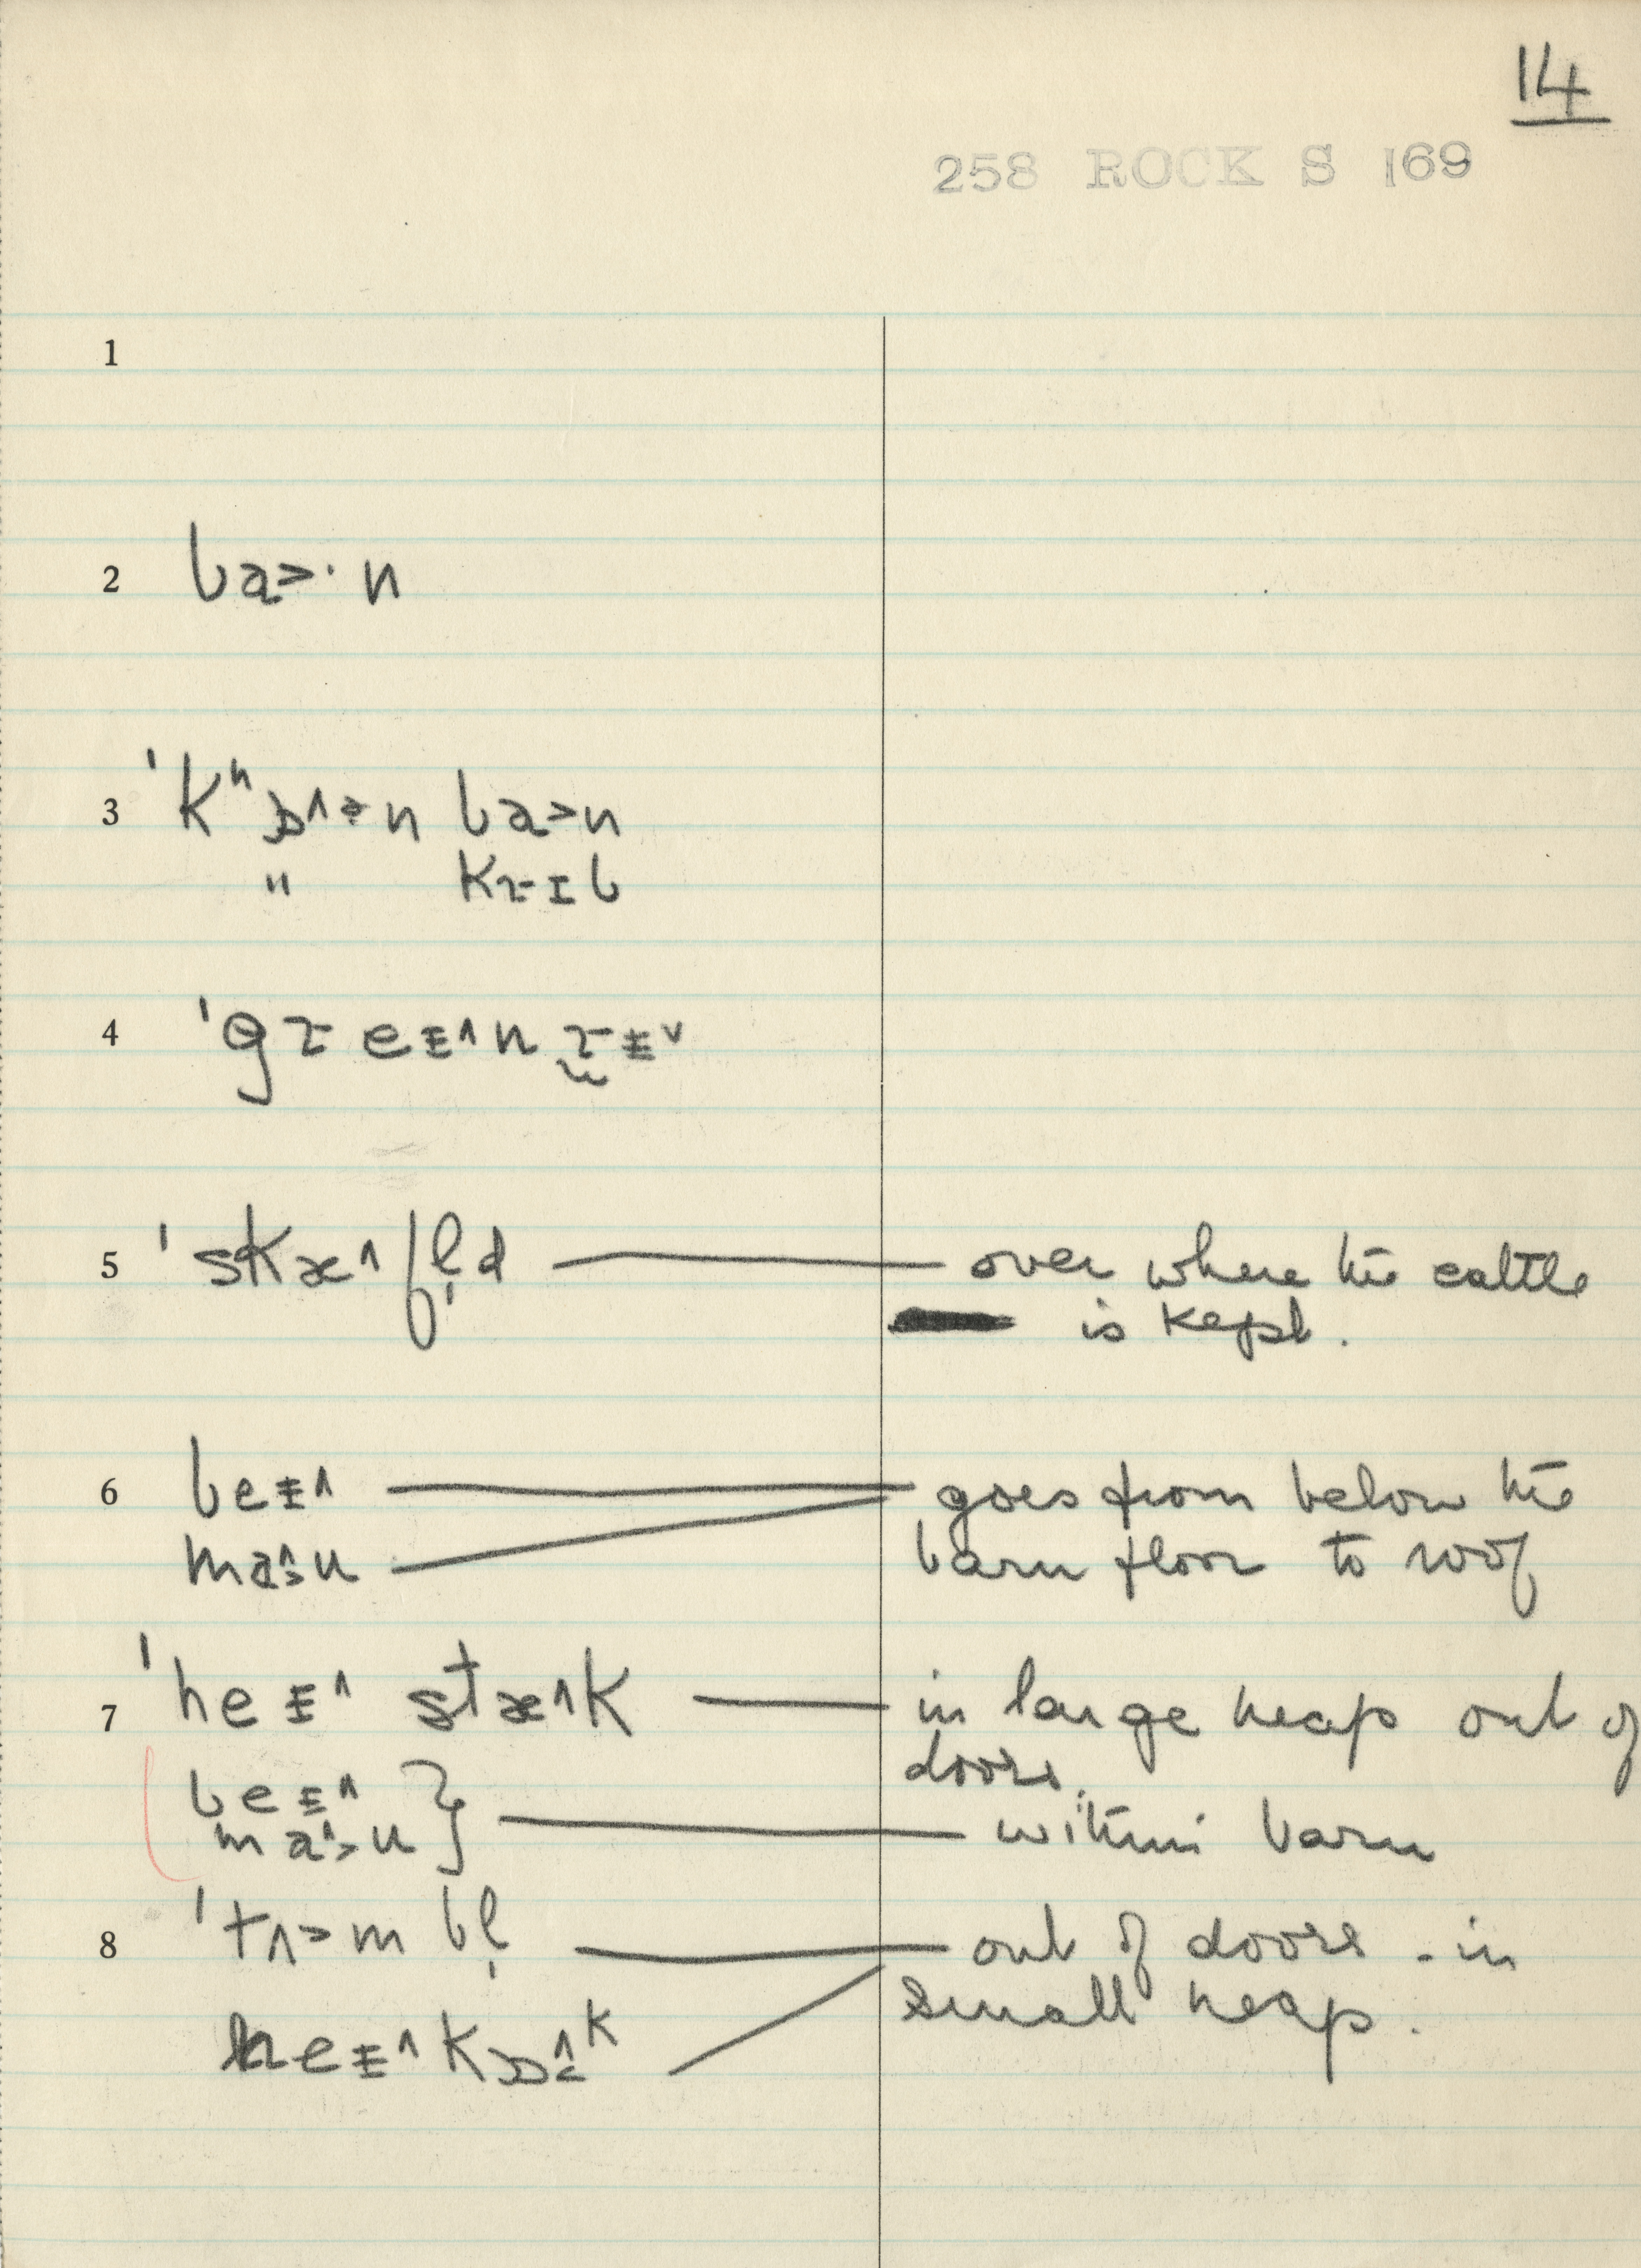 14
258 ROCK S 169
1
2 ba>· n
3 ˈkʰɒ˄ɚn ba>n
" kɹɪb
4 ˈgɹeɪ˄nɹɪ˅
5 ˈskæ˄fl̩d — over where the cattle
is kept.
6 beɪ˄ — goes from below the
ma˄>u — barn floor to roof
7 ˈheɪ˄ stæ˄k — in large heap out of
doors.
beɪ˄ }
ma˄>u } — within barn
8 ˈtʌ>m bl̩ — out of doors - in
small heap.
heɪ˄kɒ˄<k